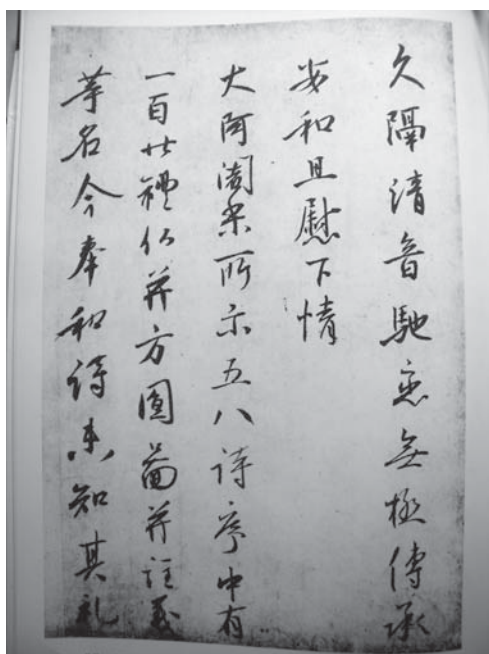 久隔清音馳恋無極傳承
安和且慰下情
大阿闍梨所示五八詩序中有
一百廿禮仏并方圓啚并註義
等名今奉和詩未知其礼